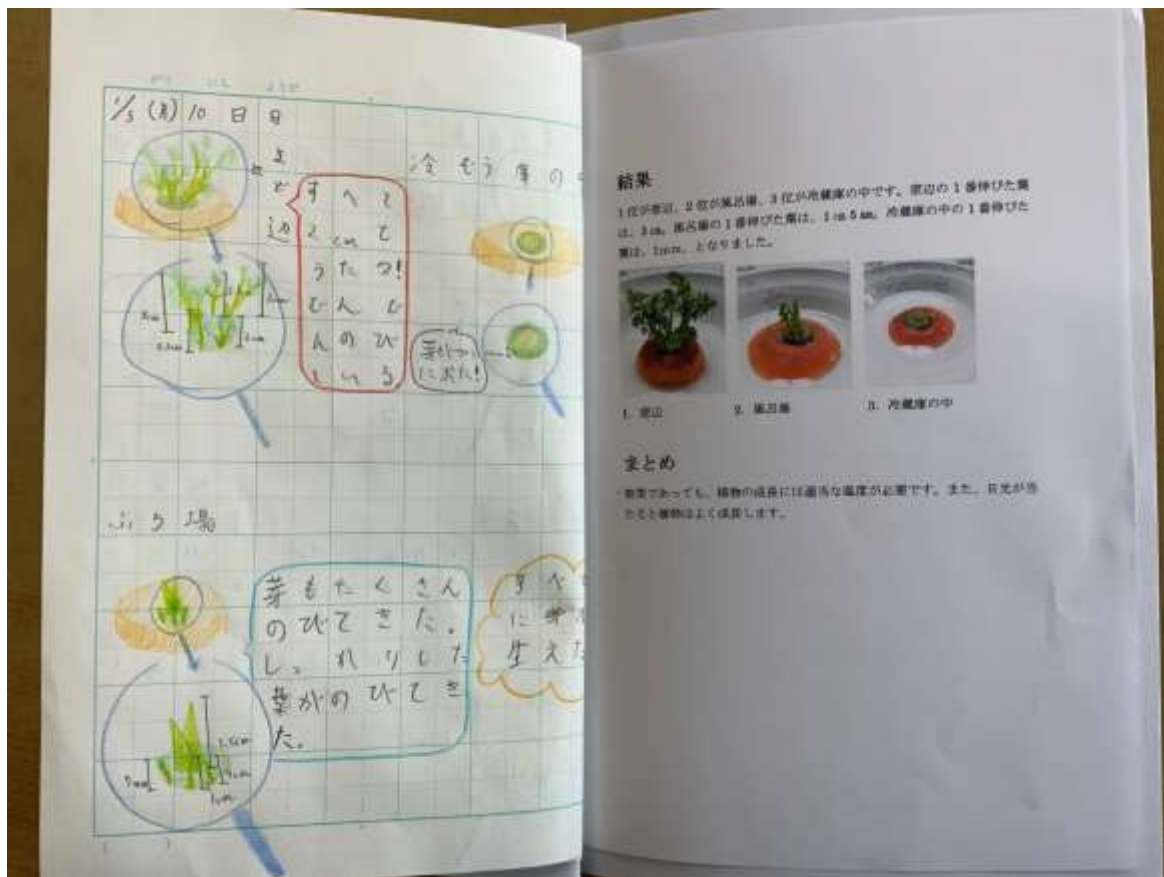 1/3(月)10日目
まど辺
すべて
2cmて
うたつ!
どんど
んのび
ている
冷もう庫の
芽がつい
に出た!
ふろ場
芽もたくさん
のびてきた。
しっかりした
葉がのびてき
た。
1.5cm
1cm
すべ
に芽
生えた
結果
1位が窓辺、2位が風呂場、3位が冷蔵庫の中です。窓辺の1番伸びた葉
は、3㎝。風呂場の1番伸びた葉は、1㎝5㎜。冷蔵庫の中の1番伸びた
葉は、1mm、となりました。
1. 窓辺
2. 風呂場
3. 冷蔵庫の中
まとめ
野菜であっても、植物の成長には適当な温度が必要です。また、日光が当
たると植物はよく成長します。